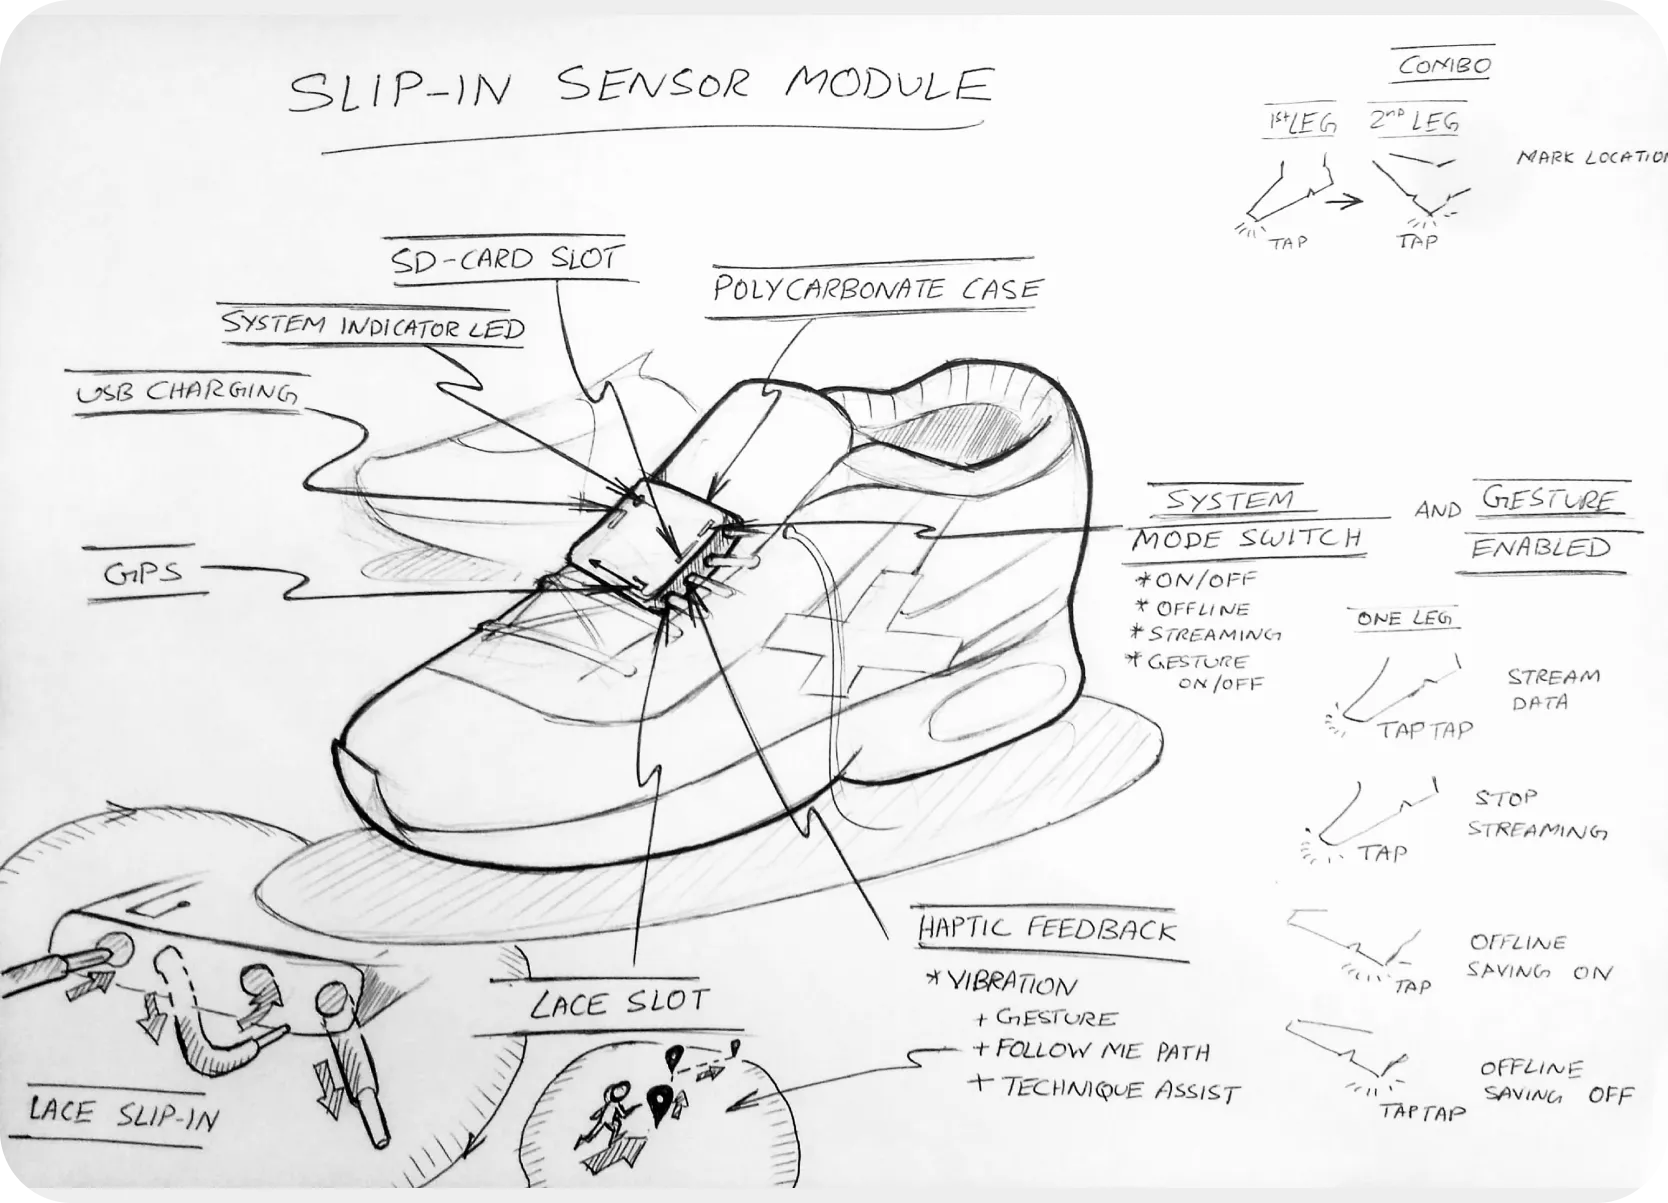 SLIP-IN SENSOR MODULE
COMBO
1st LEG
2nd LEG
MARK LOCATION
TAP
TAP
SD-CARD SLOT
POLYCARBONATE CASE
SYSTEM INDICATOR LED
USB CHARGING
GPS
SYSTEM
MODE SWITCH
* ON/OFF
* OFFLINE
* STREAMING
* GESTURE
ON/OFF
AND GESTURE
ENABLED
ONE LEG
STREAM
DATA
TAP TAP
STOP
STREAMING
TAP
OFFLINE
SAVING ON
TAP
OFFLINE
SAVING OFF
TAP TAP
HAPTIC FEEDBACK
* VIBRATION
+ GESTURE
+ FOLLOW ME PATH
+ TECHNIQUE ASSIST
LACE SLOT
LACE SLIP-IN